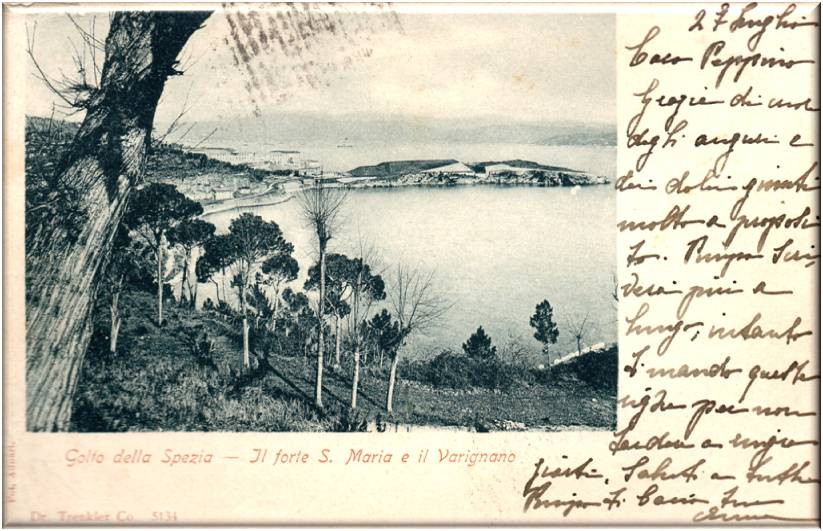 27 Luglio
Caro Peppino
Grazie di cuore
degli auguri e
dei dolci giunti
molto a proposi
to. Scri,
verai più a
lungo, intanto
ti mando queste
righe per non
tardare a
Saluti a tutti
ti bacia tua
Golfo della Spezia — Il forte S. Maria e il Varignano
Fot. Alinari.
Dr. Trenkler Co. 5134